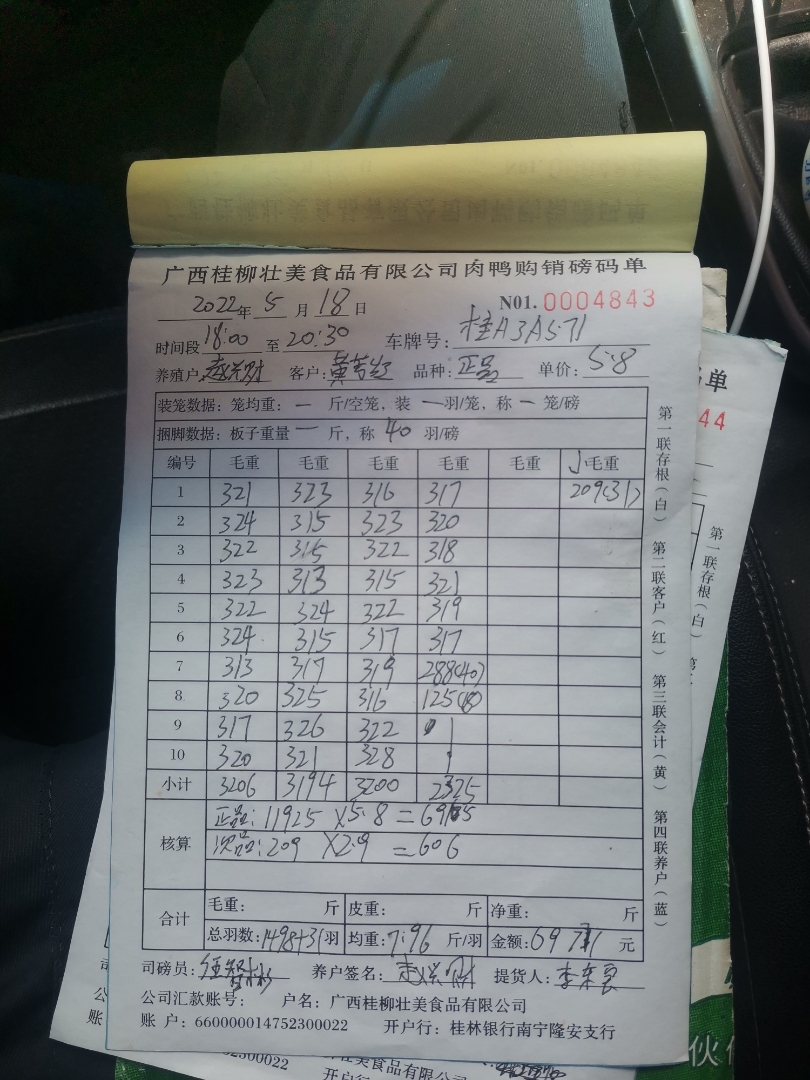 广西桂柳壮美食品有限公司肉鸭购销磅码单
2022年 5 月 18 日 N01. 0004843
时间段 18:00 至 20:30 车牌号: 桂A3A571
养殖户: 客户: 品种: 正品 单价: 5.8
装笼数据: 笼均重: 一 斤/空笼, 装 一 羽/笼, 称 一 笼/磅
捆脚数据: 板子重量 一 斤, 称 40 羽/磅
编号 毛重 毛重 毛重 毛重 毛重 毛重
1 321 323 316 317 209(31)
2 324 315 323 320
3 322 315 322 318
4 323 313 315 321
5 322 324 322 319
6 324 315 317 317
7 313 317 319 288(40)
8 320 325 316 125(18)
9 317 326 322
10 320 321 328
小计 3206 3194 3200 2325
核算
正品: 11925 X5.8 = 69165
次品: 209 X2.9 = 606
合计
毛重: 斤 皮重: 斤 净重: 斤
总羽数: 1498+31羽 均重: 7.96 斤/羽 金额: 69771 元
司磅员: 养户签名: 提货人:
公司汇款账号: 户名: 广西桂柳壮美食品有限公司
账 户: 660000014752300022 开户行: 桂林银行南宁隆安支行
第一联存根(白) 第二联客户(红) 第三联会计(黄) 第四联养户(蓝)
码单
44
第一联存根(白)
伙